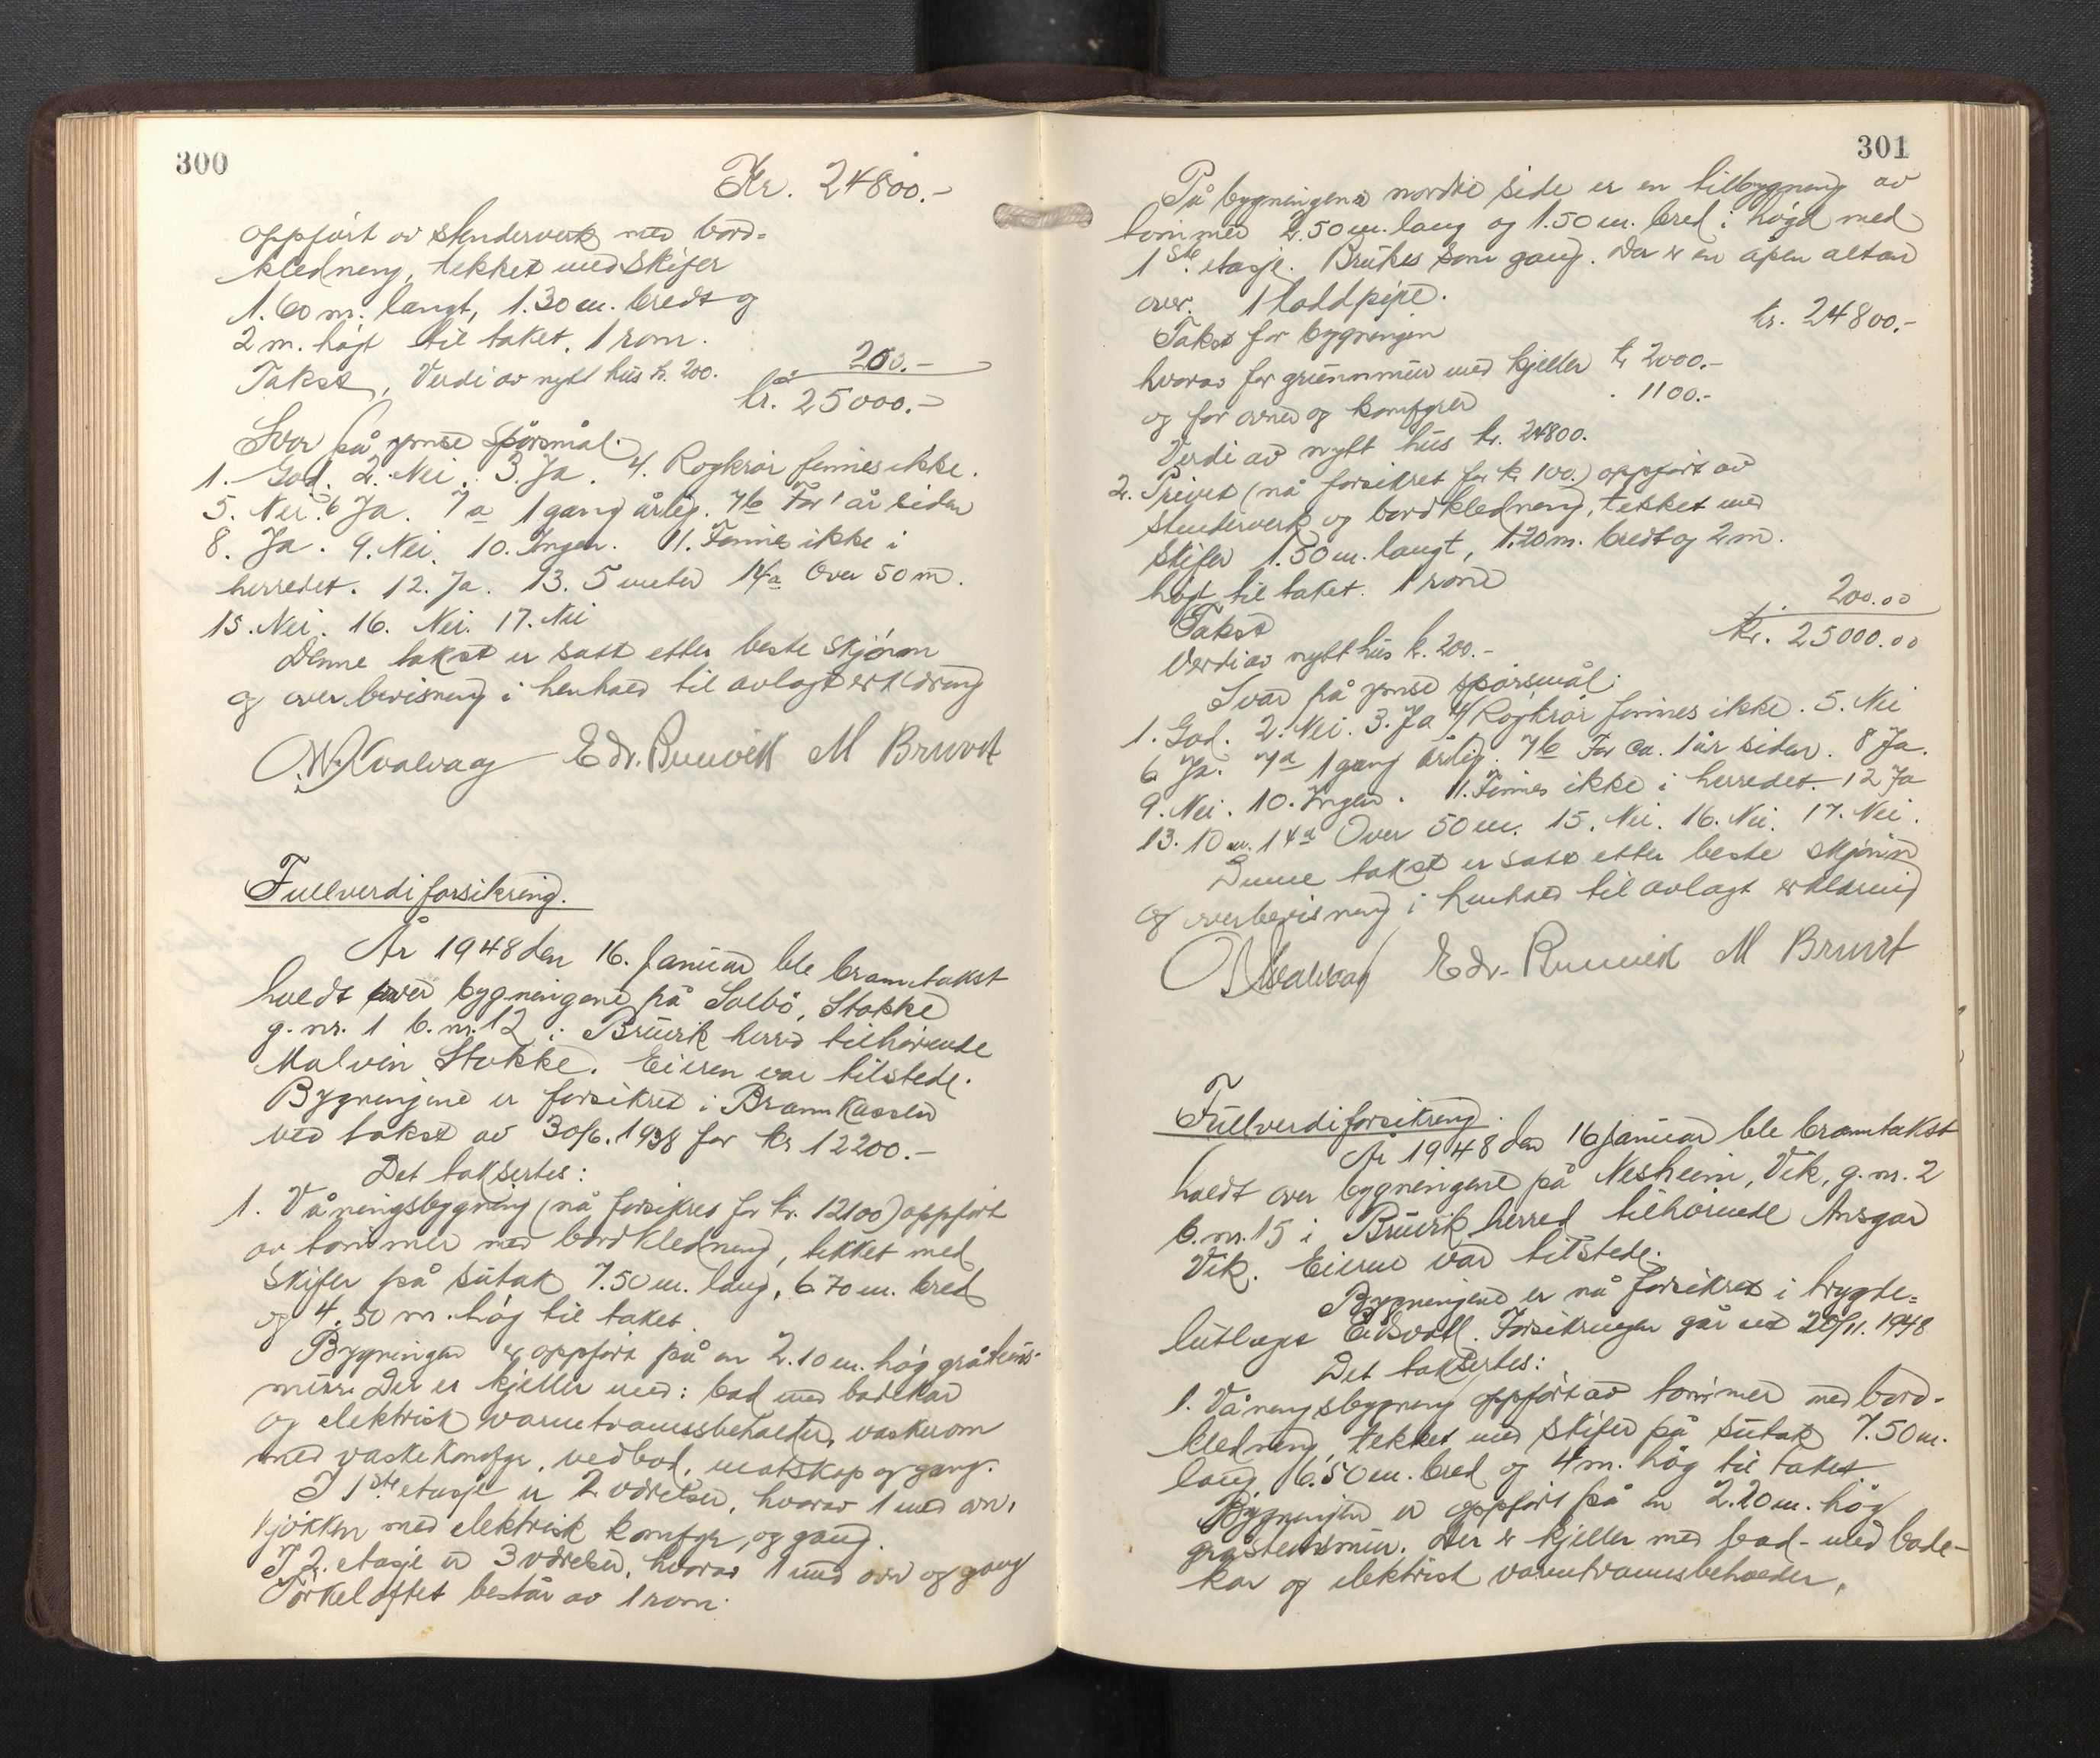 300
Kr. 24800.-
oppført av stenderverk med bord-
kledning, tekket med skifer
1.60 m. langt, 1.30 m. bredt og
2 m. høgt til taket. 1 rom.
Takst, Verdi av nytt hus kr. 200. 200.-
kr. 25000.-
Svar på ymse spørsmål.
1. God. 2. Nei. 3. Ja. 4. Røykrør finnes ikke.
5. Nei. 6 Ja. 7a 1 gang årlig. 7b For 1 år siden
8. Ja. 9. Nei. 10. Ingen. 11. Finnes ikke i
herredet. 12. Ja. 13. 5 meter 14a Over 50 m.
15. Nei. 16. Nei. 17. Nei
Denne takst er satt etter beste skjønn
og overbevisning i henhold til avlagt erklæring
Kvalvaag Edv. Bruvik M Bruvik
Fullverdiforsikring.
År 1948 den 16. januar ble branntakst
holdt over bygningene på Solbø, Stokke
g. nr. 1 b. nr. 12 i Bruvik herred tilhørende
Malvin Stokke. Eieren var tilstede.
Bygningene er forsikret i Brannkassen
ved takst av 30/6. 1938 for kr 12200.-
Det taksertes:
1. Våningsbygning (nå forsikres for kr. 12100) oppført
av tømmer med bordkledning, tekket med
skifer på sutak 7.50 m. lang, 6.70 m. bred
og 4.50 m. høg til taket.
Bygningen er oppført på en 2.10 m. høg gråsteins-
mur. Der er kjeller med: bad med badekar
og elektrisk varmtvannsbeholder, vaskerom
med vaskekomfyr, vedbod, matskap og gang.
I 1ste etasje er 2 værelser, hvorav 1 med ovn,
kjøkken med elektrisk komfyr, og gang.
I 2. etasje er 3 værelser, hvorav 1 med ovn og gang
Tørkeloftet består av 1 rom.
301
På bygningens nordre side er en tilbygning av
tømmer 2.50 m. lang og 1.50 m. bred i høgd med
1ste. etasje. Brukes som gang. Der er en åpen altan
over. 1 loddpipe.
Takst for bygningen kr. 24800.-
hvorav for grunnmur med kjeller kr 2000.-
og for ovner og komfyrer " 1100.-
Verdi av nytt hus kr. 24800.
2. Privet (nå forsikret for kr 100.) oppført av
stenderverk og bordkledning, tekket med
skifer 1.50 m. langt, 1.20 m. bredt og 2 m.
høgt til taket. 1 rom
Takst 200.00
Verdi av nytt hus kr. 200.- Kr. 25000.00
Svar på ymse spørsmål:
1. God. 2. Nei. 3. Ja 4 Røykrør finnes ikke. 5. Nei
6 Ja. 7a 1 gang årlig. 7b For ca. 1 år siden. 8 Ja.
9. Nei. 10. Ingen. 11. Finnes ikke i herredet. 12 Ja
13. 10 m. 14a Over 50 m. 15. Nei. 16. Nei. 17. Nei.
Denne takst er satt etter beste skjønn
og overbevisning i henhold til avlagt erklæring
Kvalvaag Edv. Bruvik M Bruvik
Fullverdiforsikring.
År 1948 den 16 januar ble branntakst
holdt over bygningene på Nesheim, Vik, g. nr. 2
b. nr. 15 i Bruvik herred tilhørende Ansgar
Vik. Eieren var tilstede.
Bygningene er nå forsikret i trygde-
lutlaget Eidsvoll. Forsikringen går ut 20/11. 1948
Det taksertes:
1. Våningsbygning oppført av tømmer med bord-
kledning, tekket med skifer på sutak 7.50 m.
lang, 6.50 m. bred og 4 m. høg til taket.
Bygningen er oppført på en 2.20 m. høg
gråsteinsmur. Der er kjeller med bad- med bade-
kar og elektrisk varmtvannsbeholder,